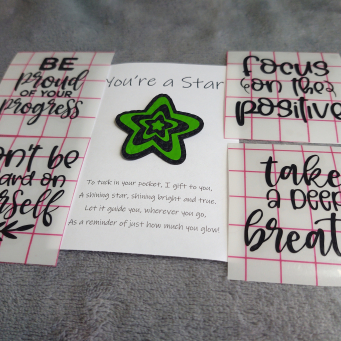 BE
proud
OF YOUR
progress
on't be
ard on
rself
You're a Star
To tuck in your pocket, I gift to you,
A shining star, shining bright and true.
Let it guide you, wherever you go,
As a reminder of just how much you glow!
focus
on the
positive
take
a DEEP
breat